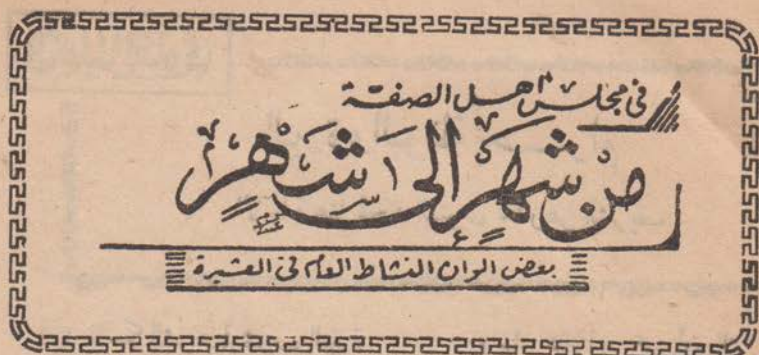 في مجلس أهل الصفة
من شهر إلى شهر
بعض الوان النشاط العام في العشيرة